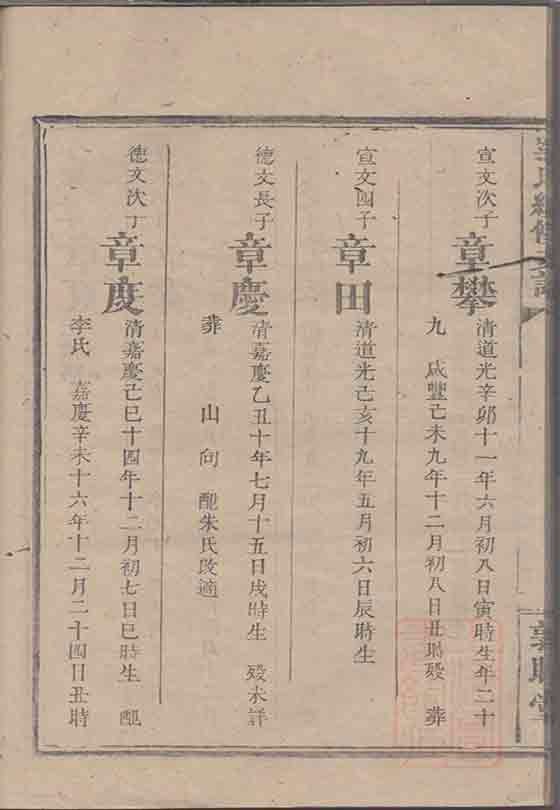 氏續修支譜
宣文次子
章攀
清道光辛卯十一年六月初八日寅時生年二十
九 咸豐己未九年十二月初八日丑時殁 葬
宣文四子
章田
清道光己亥十九年五月初六日辰時生
德文長子
章慶
清嘉慶乙丑十年七月十五日戌時生 殁未詳
葬 山 向 配朱氏改適
德文次丁
章度
清嘉慶己巳十四年十二月初七日巳時生 配
李氏 嘉慶辛未十六年十二月二十四日丑時